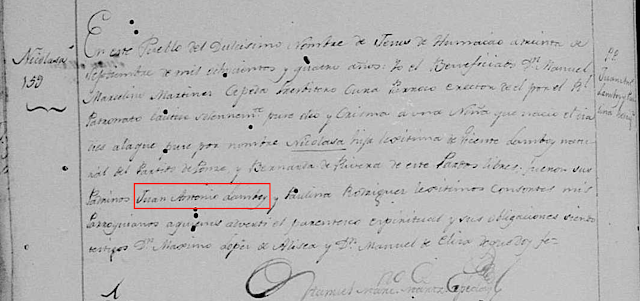 Nicolasa
159
En este Pueblo del Dulcisimo Nombre de Jesus de Humacao a treinta de
Septiembre de mil ochocientos y quatro años: Yo el Beneficiado Dn. Manuel
Marcelino Martinez Cepeda Presbitero Cura Parroco Rector de el por el Rl.
Patronato Bautise Solemnemte. puse oleo y Crisma a una Niña que nacio el dia
tres ala que puse por nombre Nicolasa hija lexitima de Vicente Lamboy natu-
ral del Partido de Ponze y Bernarda de Rivera de este Pardos libres. Fueron sus
Padrinos Juan Antonio Lamboy y Paulina Rodriguez lexitimos Consortes mis
Parroquianos a quienes adverti el parentesco espiritual y sus obligaciones siendo
testigos Dn. Maximo de Alisea y Dn. Manuel de Eliza de que doy fe-